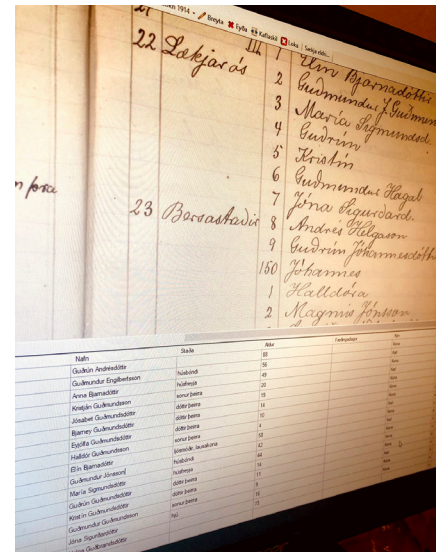 1914 - Breyta Eyða Kaflaskil Loka Sækja eldri...
21
22 Lækjarós III. 1 Elín Bjarnadóttir
2 Guðmundur J. Guðmun
3 María Sigmundsd.
4 Guðrún
5 Kristín
6 Guðmundur Hagal
7 Jóna Sigurðard.
23 Bersastaðir 8 Andrés Helgason
9 Guðrún Jóhannesdótti
150 Jóhannes
1 Halldóra
2 Magnús Jónsson
Nafn Staða Aldur Fæðingardagur Kyn
Guðrún Andrésdóttir 88 Kona
Guðmundur Engilbertsson húsbóndi 56 Karl
Anna Bjarnadóttir húsfreyja 49 Kona
Kristján Guðmundsson sonur þeirra 20 Karl
Jósabet Guðmundsdóttir dóttir þeirra 19 Kona
Bjarney Guðmundsdóttir dóttir þeirra 14 Kona
Eyjólfa Guðmundsdóttir dóttir þeirra 10 Kona
Halldór Guðmundsson sonur þeirra 4 Karl
Elín Bjarnadóttir 58 Kona
Guðmundur Jónsson húsbóndi 42 Karl
María Sigmundsdóttir húsfreyja 44 Kona
Guðrún Guðmundsdóttir dóttir þeirra 14 Kona
Kristín Guðmundsdóttir dóttir þeirra 11 Kona
Guðmundur Guðmundsson sonur þeirra 9 Karl
Jóna Sigurðardóttir hjú 15 Kona
Guðbrandsdóttir 73